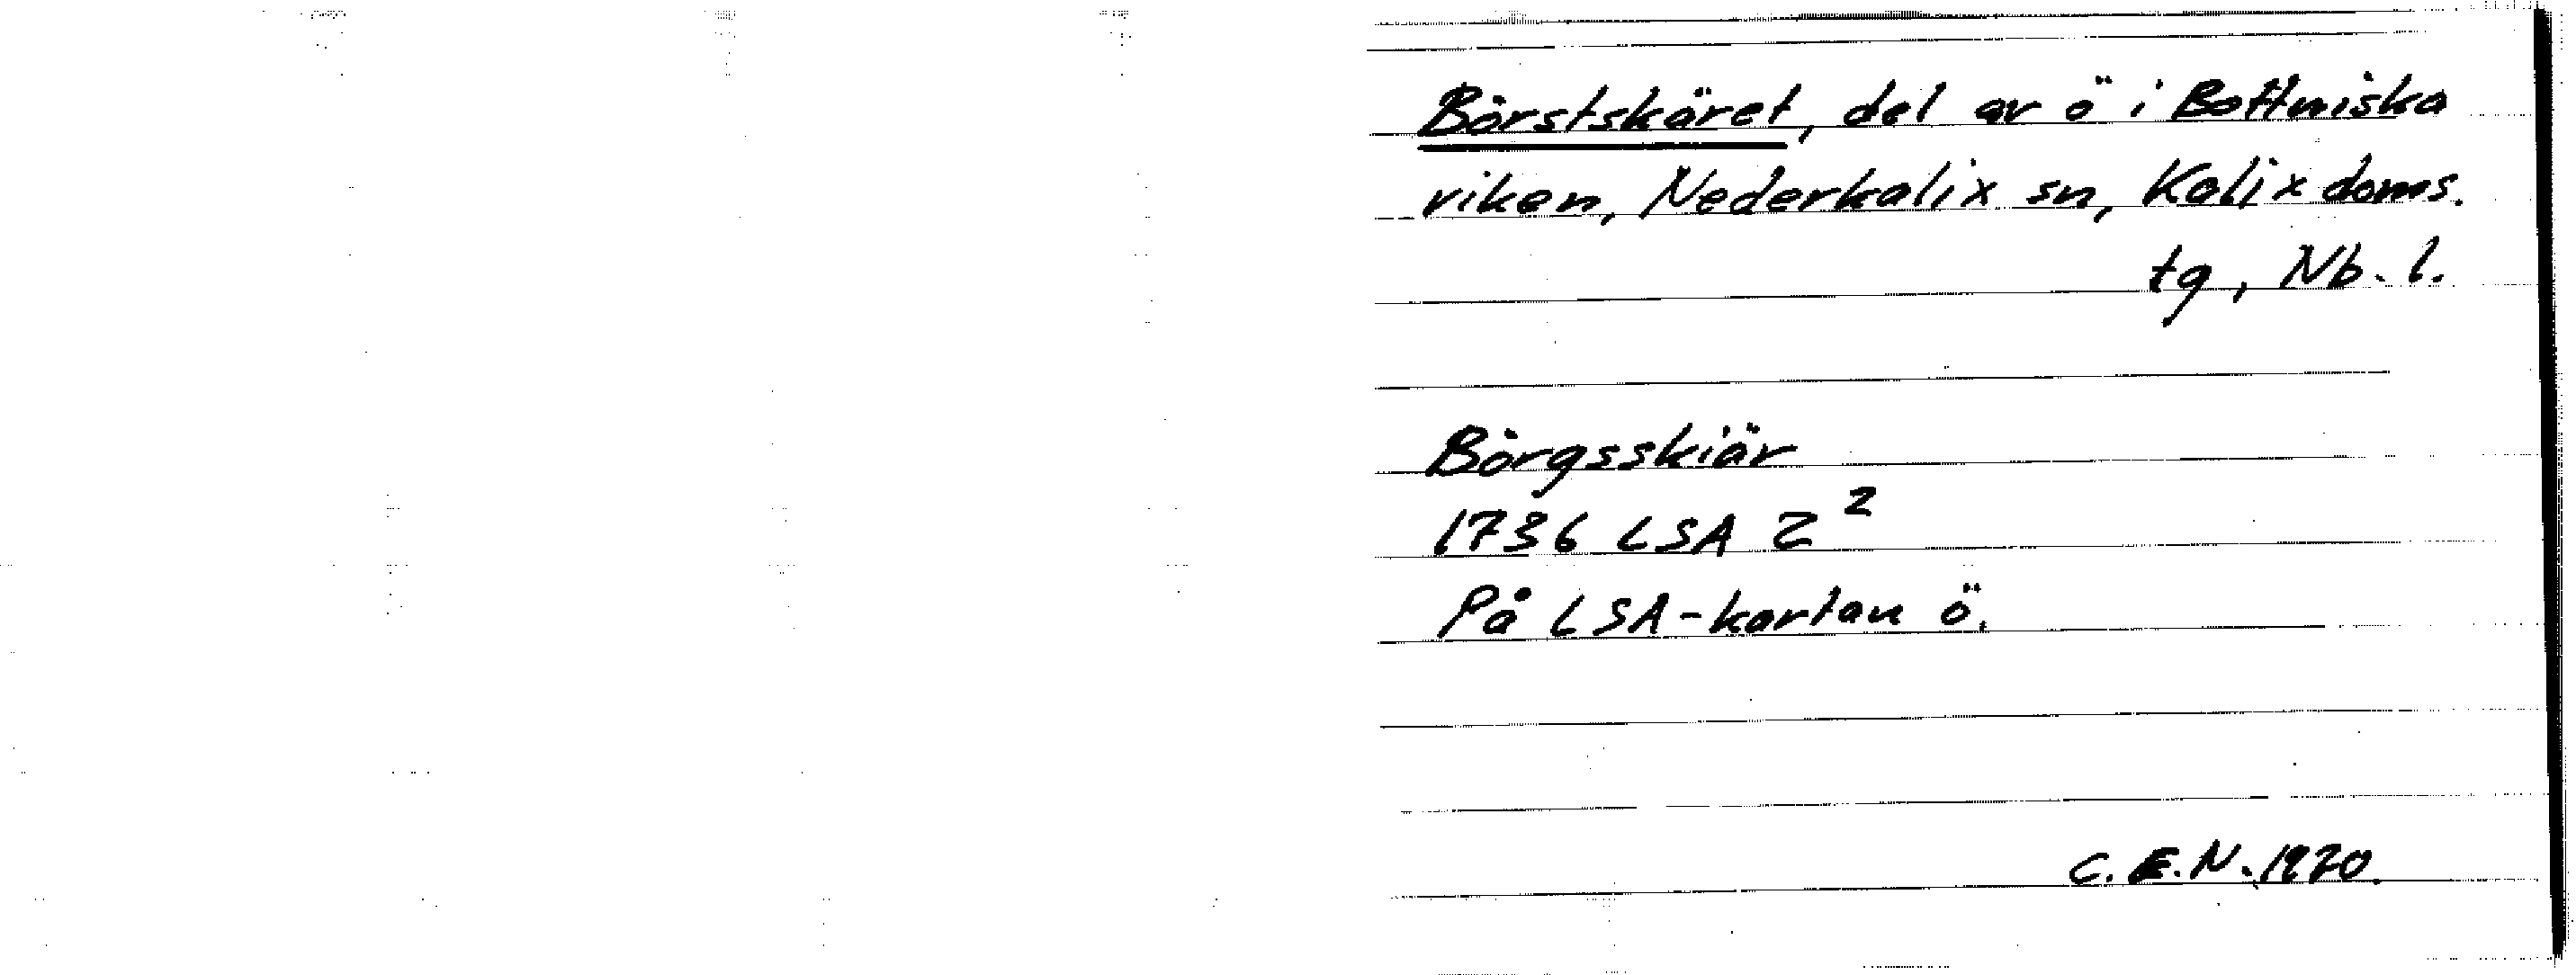 Börstskäret, del av ö i Bottniska
viken, Nederkalix sn, Kalix doms.
tg, Nb. l.
Börgsskiär
1736 LSA Z²
På LSA-kartan ö.
C.E.N. 1970.